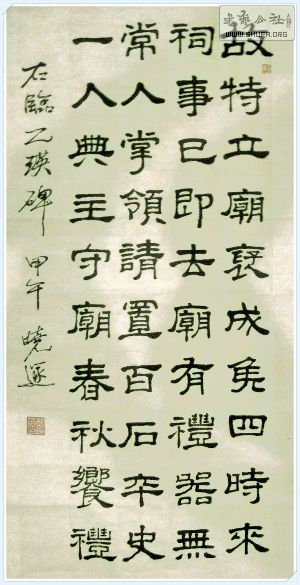 書藝公社
WWW.SHUFA.ORG
故特立廟褒成侯四時來
祠事已即去廟有禮器無
常人掌領請置百石卒史
一人典主守廟春秋饗禮
右臨乙瑛碑 甲午 曉